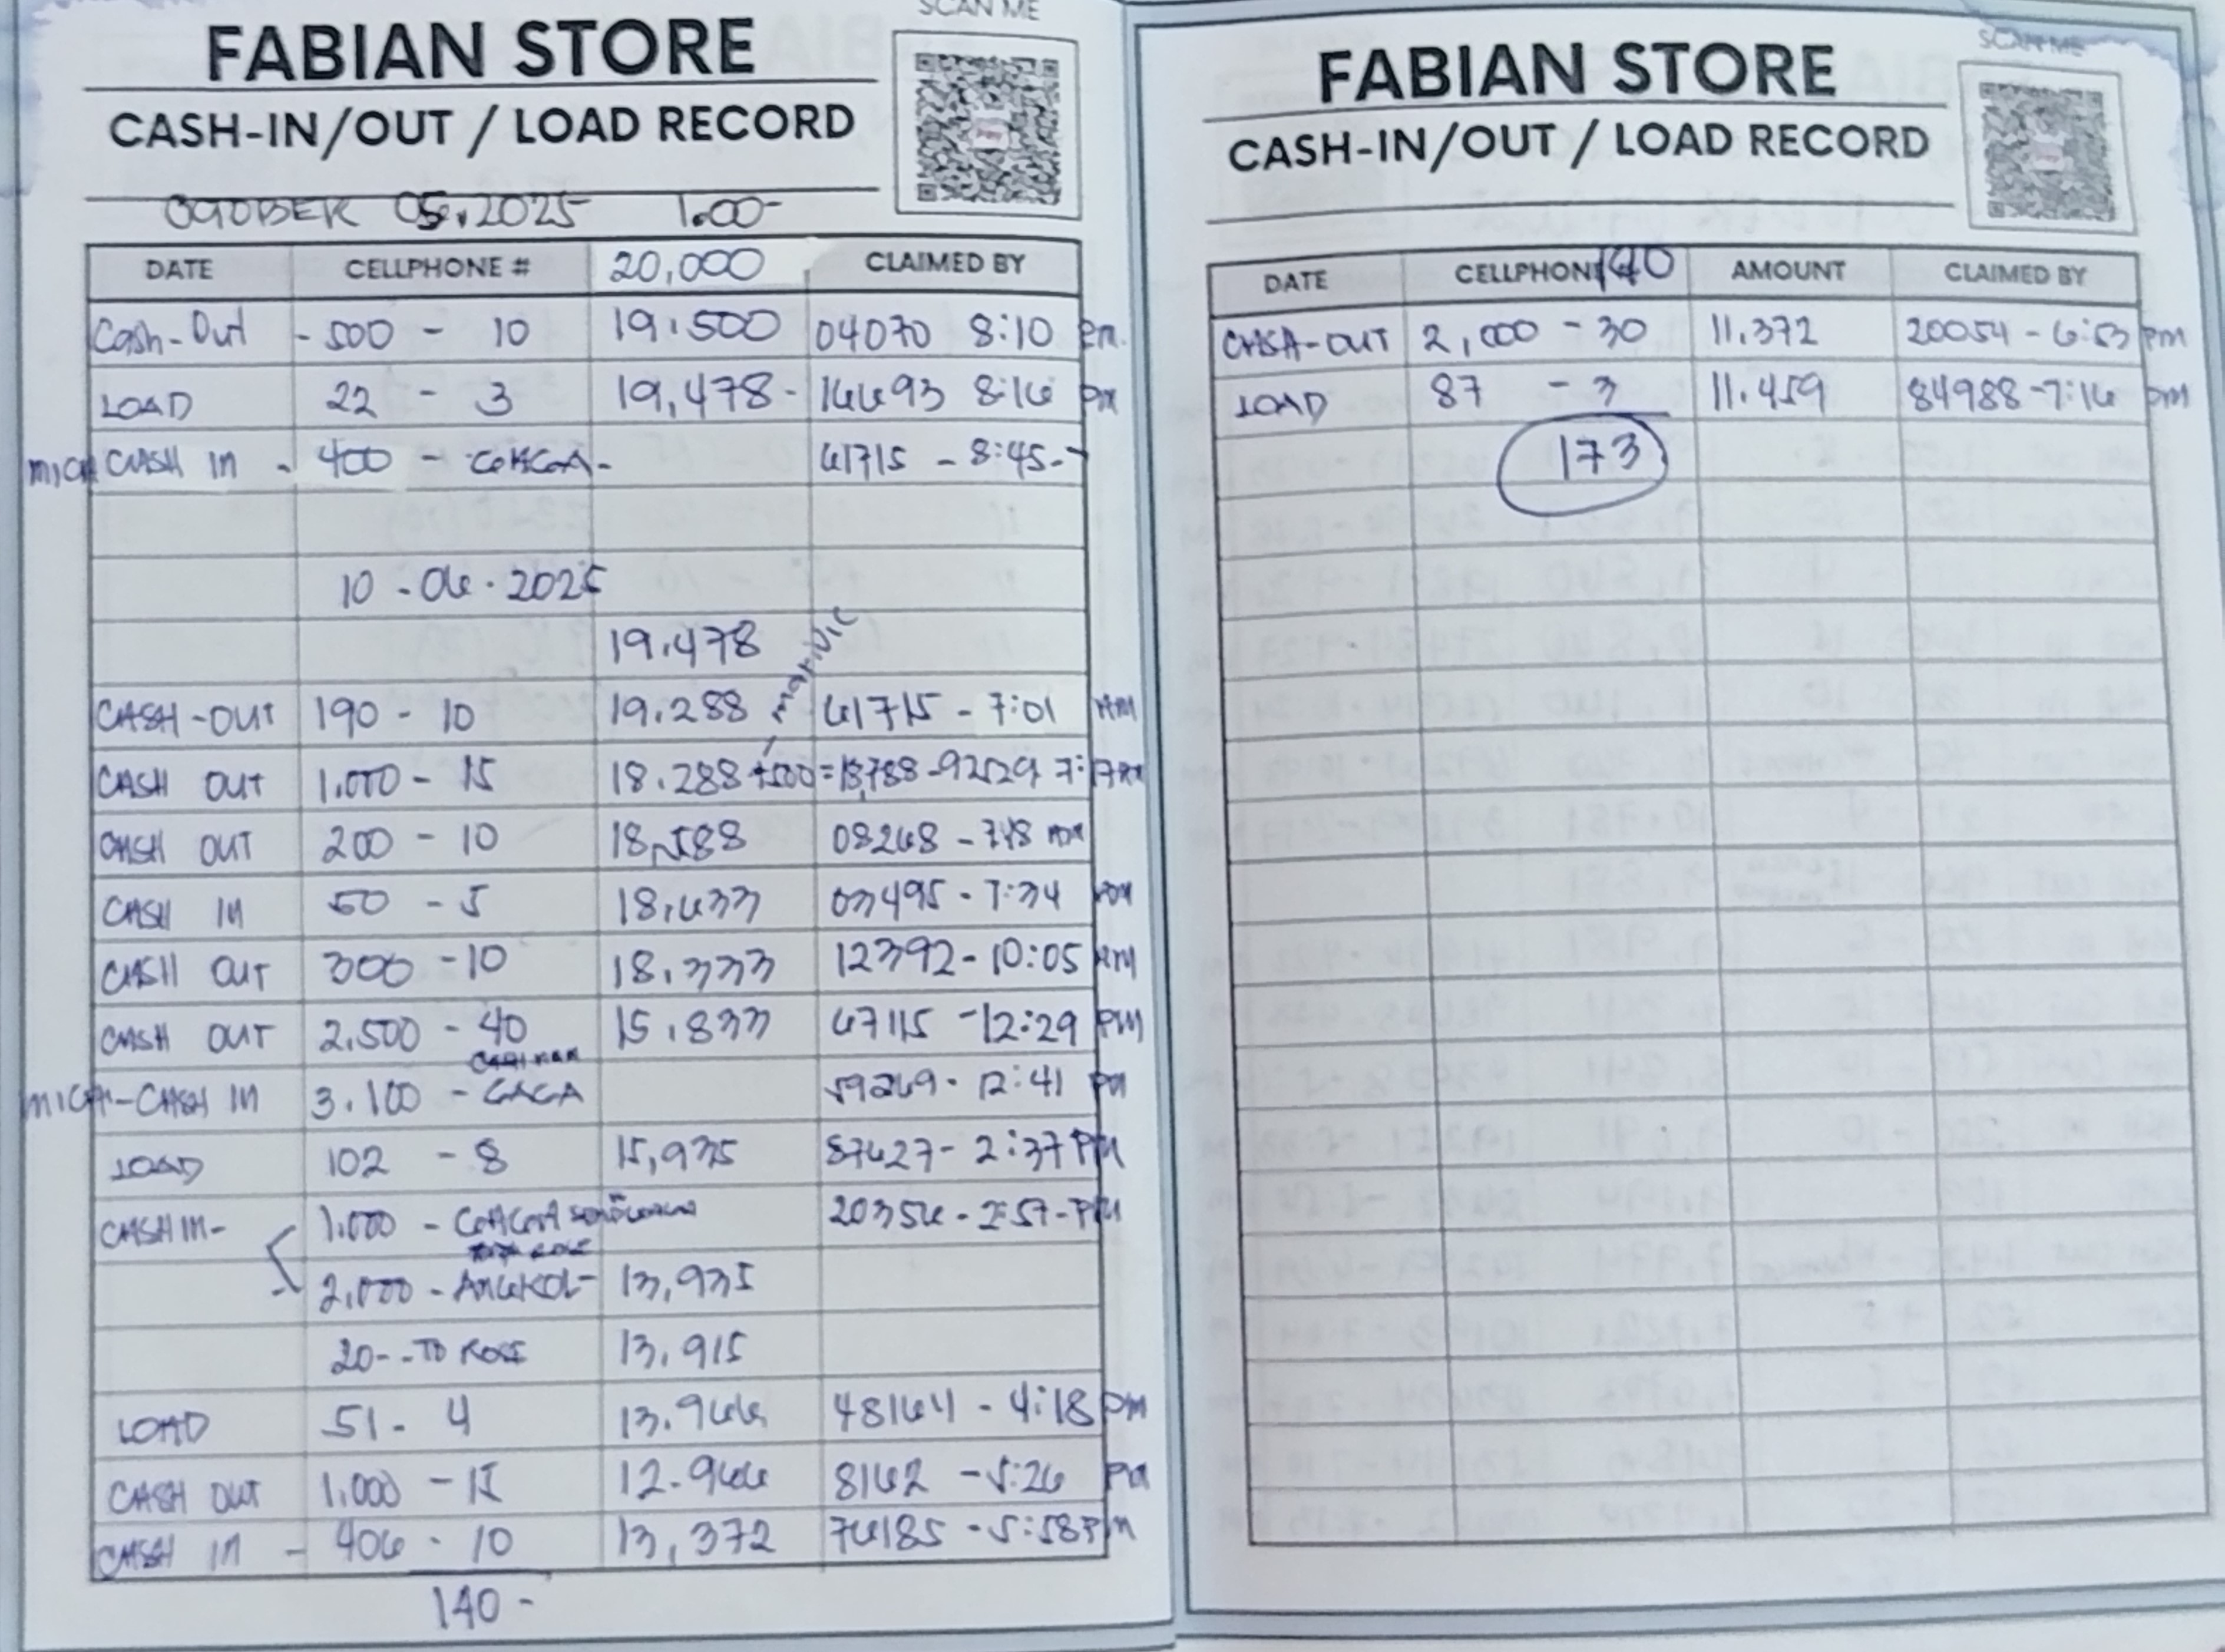 SCAN ME
FABIAN STORE
CASH-IN/OUT / LOAD RECORD
OCTOBER 05.2025 1.00-
DATE CELLPHONE # 20,000 CLAIMED BY
Cash-Out - 500 - 10 19.500 04070 8:10 pm.
LOAD 22 - 3 19,478- 16693 8:16 pm
MICA CASH IN - 400 - 61715 - 8:45-
10 - 06 - 2025
19.478
CASH-OUT 190 - 10 19.288 61715 - 7:01 AM
CASH OUT 1.000 - 15 18.288 +500 = 18,788 -92529 7:17 AM
CASH OUT 200 - 10 18,588 08268 -
CASH IN 50 - 5 18,633 03495 - 7:34
CASH OUT 300 - 10 18.333 12392 - 10:05 AM
CASH OUT 2,500 - 40 15.833 67115 - 12:29 PM
MICA-CASH IN 3.100 - GAGA 59269 - 12:41 pm
LOAD 102 - 8 15,935 87627 - 2:37 PM
CASH IN- 1.000 - 20356 - 2:57 - PM
2,000 - 13,935
20- - TO ROSE 13,915
LOAD 51 - 4 13.966 48164 - 4:18 pm
CASH OUT 1,000 - 15 12.966 8162 - 5:26 pm
CASH IN - 406 - 10 13,372 76185 - 5:58 PM
140 -
SCAN ME
FABIAN STORE
CASH-IN/OUT / LOAD RECORD
DATE CELLPHONE 140 AMOUNT CLAIMED BY
CASH-OUT 2,000 - 30 11.372 20054 - 6:53 pm
LOAD 87 - 3 11.459 84988 - 7:16 pm
173